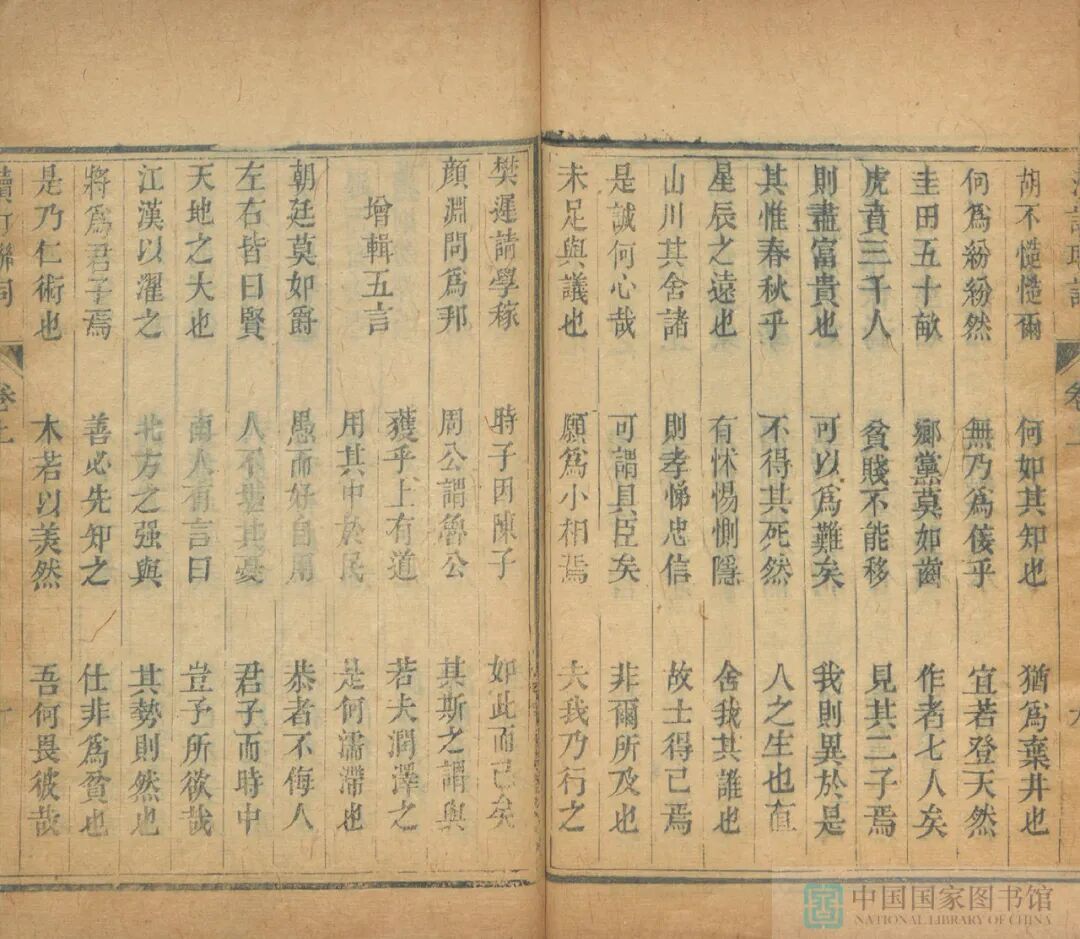 胡不慥慥爾 何如其知也 猶爲棄井也
何爲紛紛然 無乃爲佞乎 宜若登天然
圭田五十畝 鄉黨莫如齒 作者七人矣
虎賁三千人 貧賤不能移 見其二子焉
則盡富貴也 可以爲難矣 我則異於是
其惟春秋乎 不得其死然 人之生也直
星辰之遠也 有怵惕惻隱 舍我其誰也
山川其舍諸 則孝悌忠信 故士得己焉
是誠何心哉 可謂具臣矣 非爾所及也
未足與議也 願爲小相焉 夫我乃行之
樊遲請學稼 時子因陳子 如此而已矣
顏淵問爲邦 周公謂魯公 其斯之謂與
增輯五言
獲乎上有道 若夫潤澤之
用其中於民 是何濡滯也
朝廷莫如爵 愚而好自用 恭者不侮人
左右皆曰賢 人不堪其憂 君子而時中
天地之大也 南人有言曰 豈予所欲哉
江漢以濯之 北方之强與 其勢則然也
將爲君子焉 善必先知之 仕非爲貧也
是乃仁術也 木若以美然 吾何畏彼哉
卷上 十
中国国家图书馆
NATIONAL LIBRARY OF CHINA